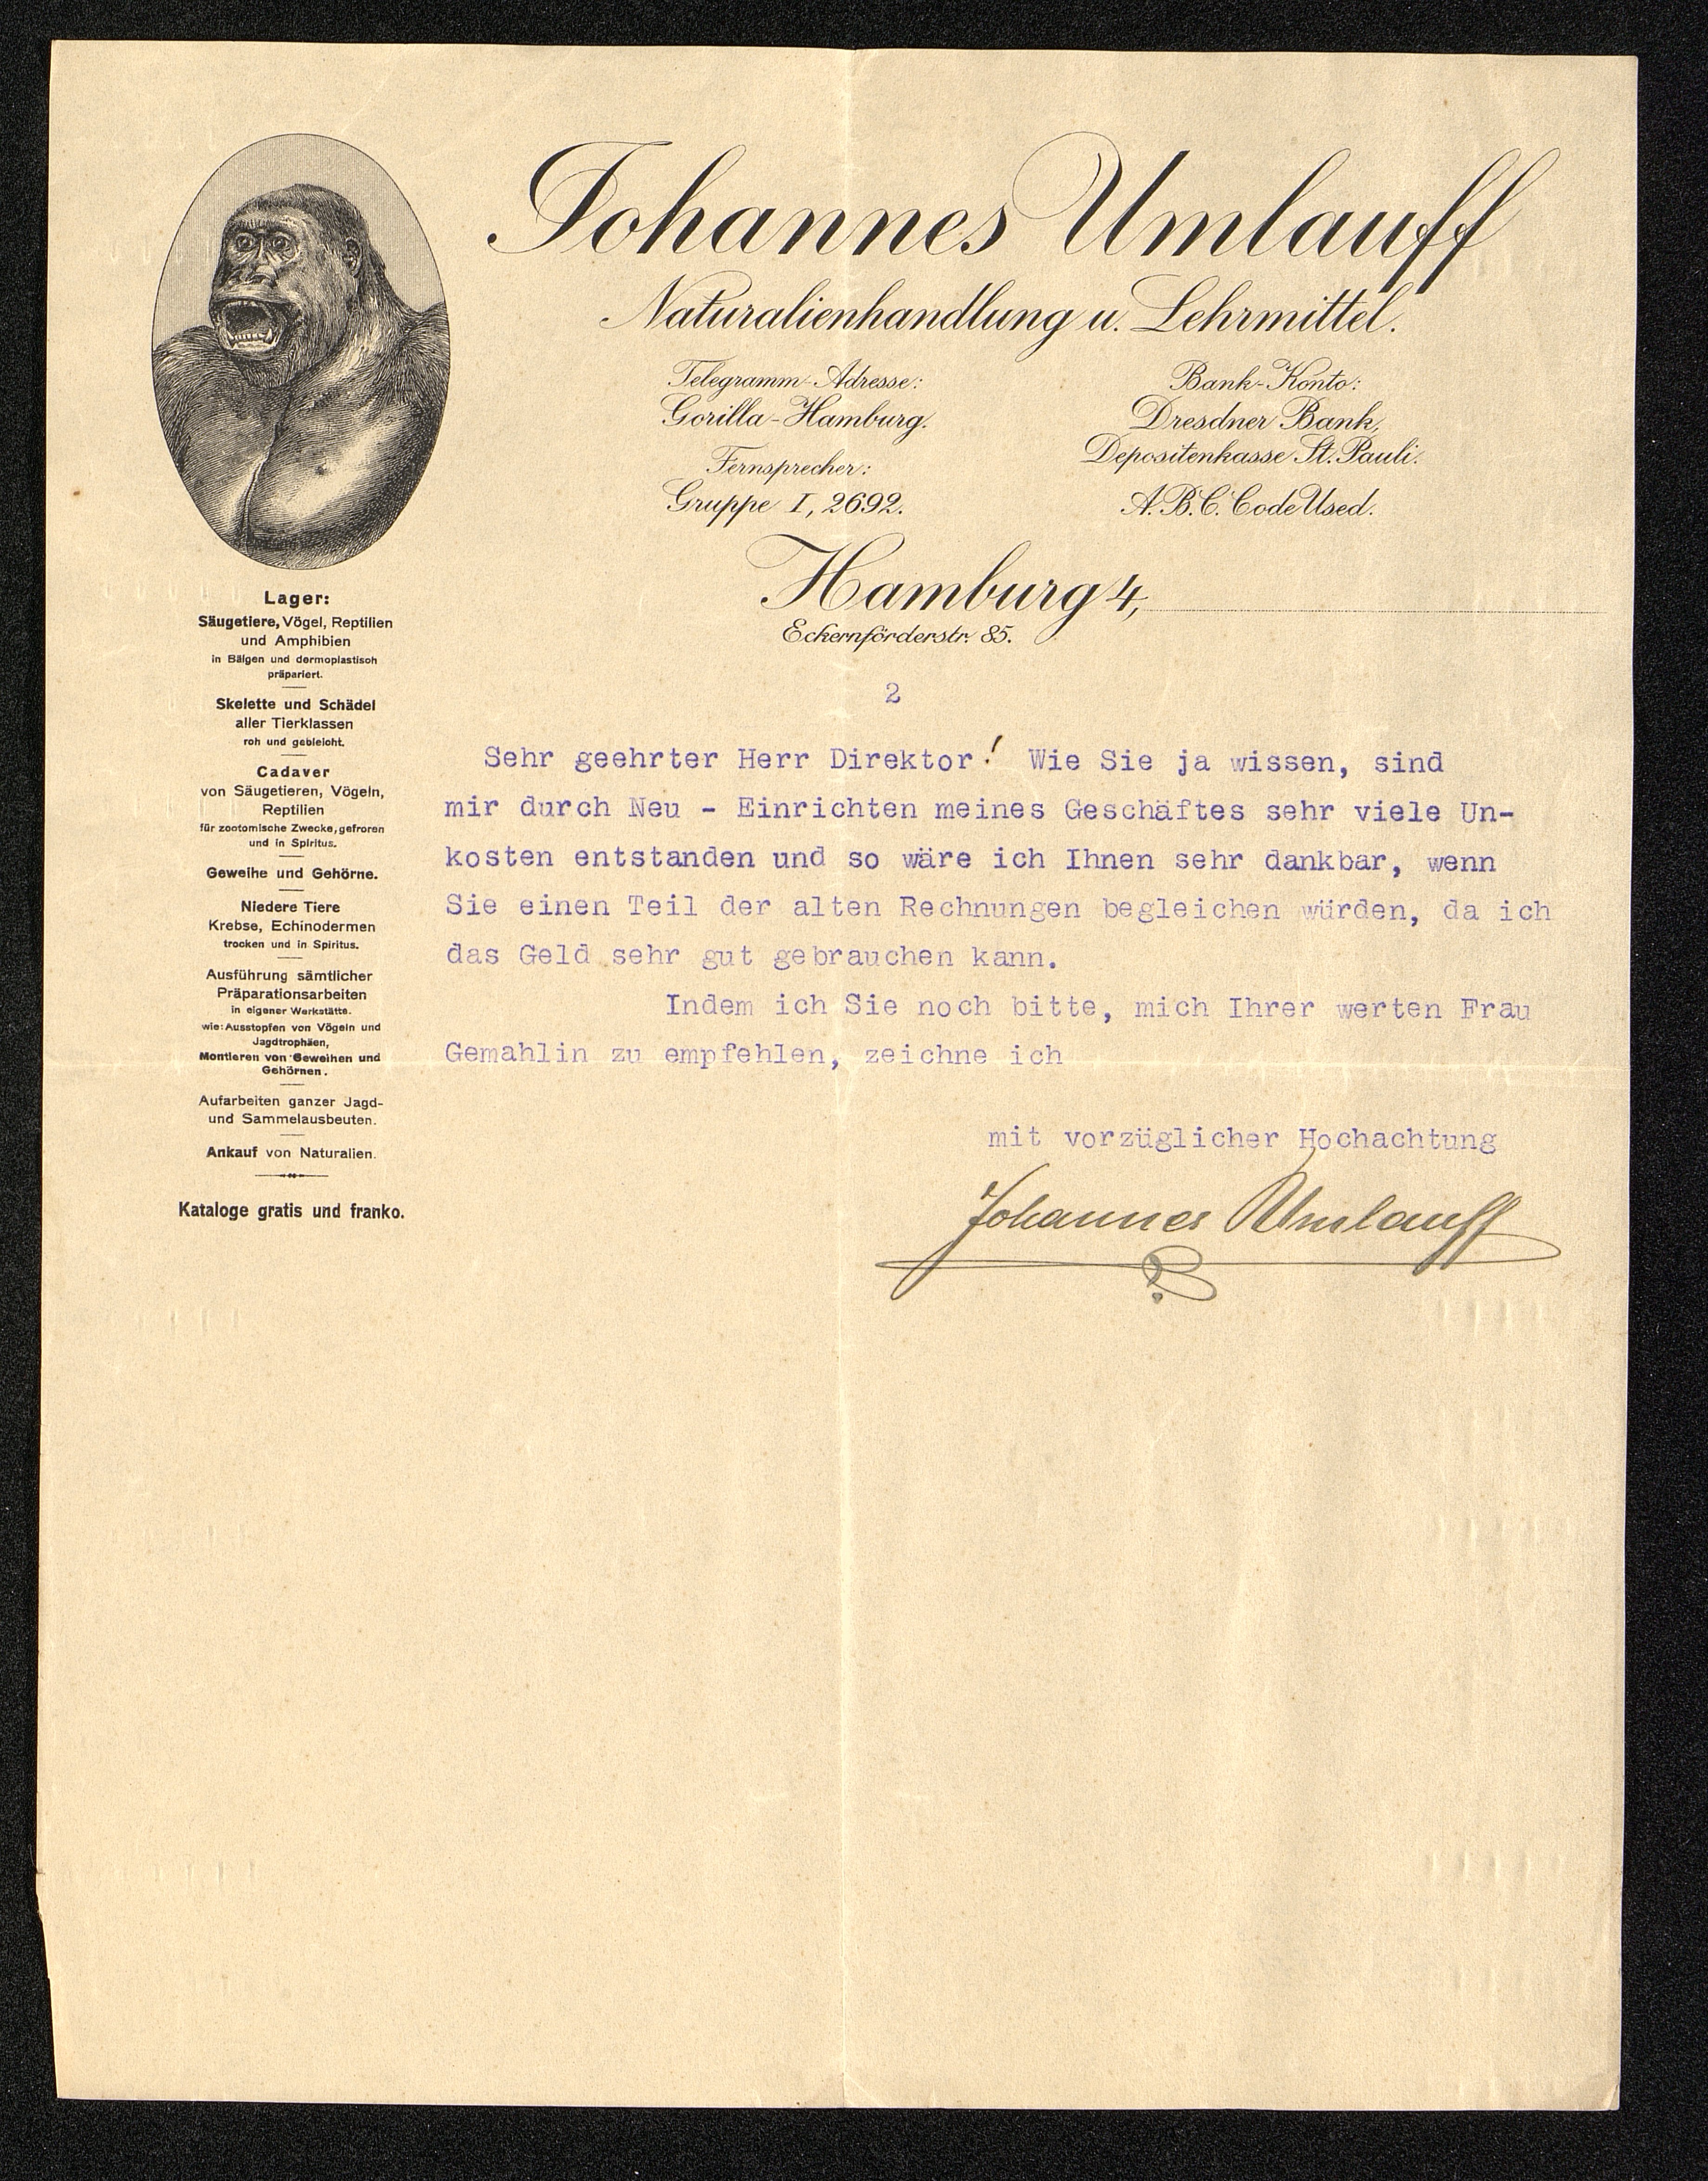 Johannes Umlauff
Naturalienhandlung u. Lehrmittel.
Telegramm-Adresse:
Gorilla-Hamburg.
Fernsprecher:
Gruppe I, 2692.
Bank-Konto:
Dresdner Bank,
Depositenkasse St. Pauli.
A.B.C. Code Used.
Hamburg 4,
Eckernförderstr. 85.
Lager:
Säugetiere, Vögel, Reptilien
und Amphibien
in Bälgen und dermoplastisch
präpariert.
Skelette und Schädel
aller Tierklassen
roh und gebleicht.
Cadaver
von Säugetieren, Vögeln,
Reptilien
für zootomische Zwecke, gefroren
und in Spiritus.
Geweihe und Gehörne.
Niedere Tiere
Krebse, Echinodermen
trocken und in Spiritus.
Ausführung sämtlicher
Präparationsarbeiten
in eigener Werkstätte.
wie: Ausstopfen von Vögeln und
Jagdtrophäen,
Montieren von Geweihen und
Gehörnen.
Aufarbeiten ganzer Jagd-
und Sammelausbeuten.
Ankauf von Naturalien.
Kataloge gratis und franko.
2
Sehr geehrter Herr Direktor! Wie Sie ja wissen, sind
mir durch Neu - Einrichten meines Geschäftes sehr viele Un-
kosten entstanden und so wäre ich Ihnen sehr dankbar, wenn
Sie einen Teil der alten Rechnungen begleichen würden, da ich
das Geld sehr gut gebrauchen kann.
Indem ich Sie noch bitte, mich Ihrer werten Frau
Gemahlin zu empfehlen, zeichne ich
mit vorzüglicher Hochachtung
Johannes Umlauff